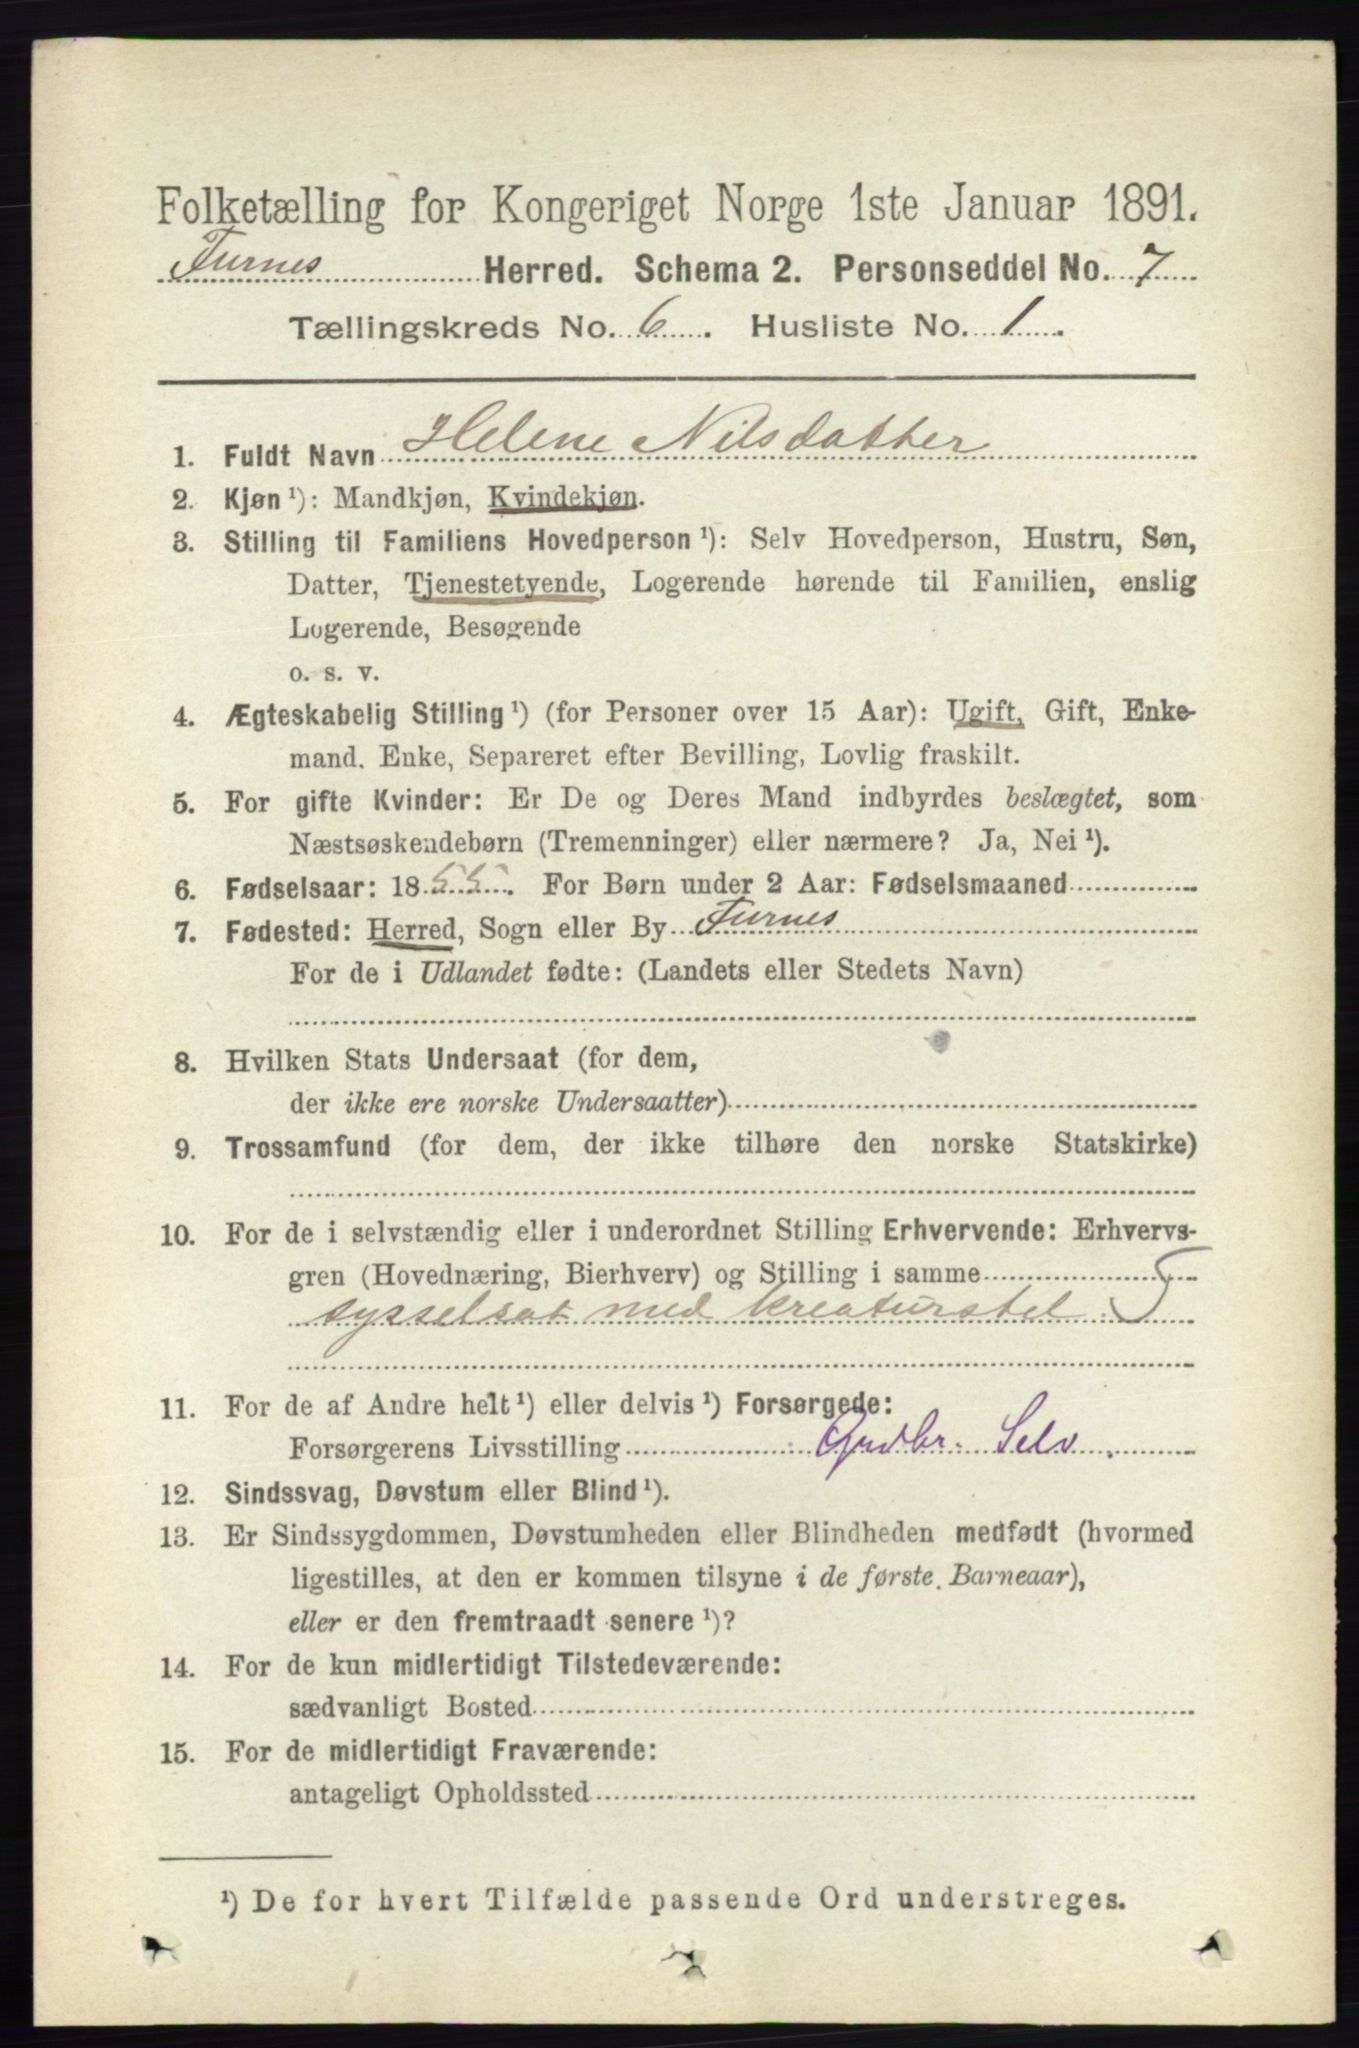 Folketælling for Kongeriget Norge 1ste Januar 1891.
Furnes Herred. Schema 2. Personseddel No. 7
Tællingskreds No. 6. Husliste No. 1.
1. Fuldt Navn Helene Nilsdatter
2. Kjøn ¹): Mandkjøn, Kvindekjøn.
3. Stilling til Familiens Hovedperson ¹): Selv Hovedperson, Hustru, Søn,
Datter, Tjenestetyende, Logerende hørende til Familien, enslig
Logerende, Besøgende
o. s. v.
4. Ægteskabelig Stilling ¹) (for Personer over 15 Aar): Ugift, Gift, Enke-
mand, Enke, Separeret efter Bevilling, Lovlig fraskilt.
5. For gifte Kvinder: Er De og Deres Mand indbyrdes beslægtet, som
Næstsøskendebørn (Tremenninger) eller nærmere? Ja, Nei ¹).
6. Fødselsaar: 1855. For Børn under 2 Aar: Fødselsmaaned
7. Fødested: Herred, Sogn eller By Furnes
For de i Udlandet fødte: (Landets eller Stedets Navn)
8. Hvilken Stats Undersaat (for dem,
der ikke ere norske Undersaatter)
9. Trossamfund (for dem, der ikke tilhøre den norske Statskirke)
10. For de i selvstændig eller i underordnet Stilling Erhvervende: Erhvervs-
gren (Hovednæring, Bierhverv) og Stilling i samme
sysselsat med kreaturstel 5
11. For de af Andre helt ¹) eller delvis ¹) Forsørgede:
Forsørgerens Livsstilling Grdbr. Selv.
12. Sindssvag, Døvstum eller Blind ¹).
13. Er Sindssygdommen, Døvstumheden eller Blindheden medfødt (hvormed
ligestilles, at den er kommen tilsyne i de første Barneaar),
eller er den fremtraadt senere ¹)?
14. For de kun midlertidigt Tilstedeværende:
sædvanligt Bosted
15. For de midlertidigt Fraværende:
antageligt Opholdssted
¹) De for hvert Tilfælde passende Ord understreges.